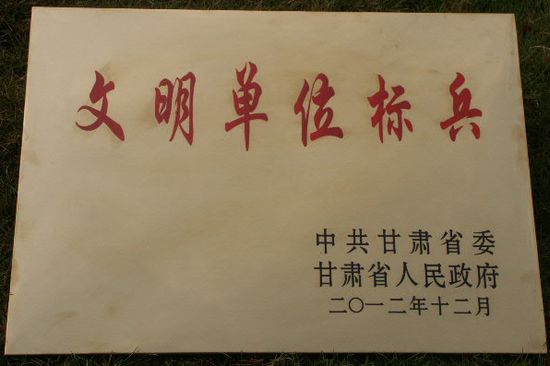 文明单位标兵
中共甘肃省委
甘肃省人民政府
二〇一二年十二月